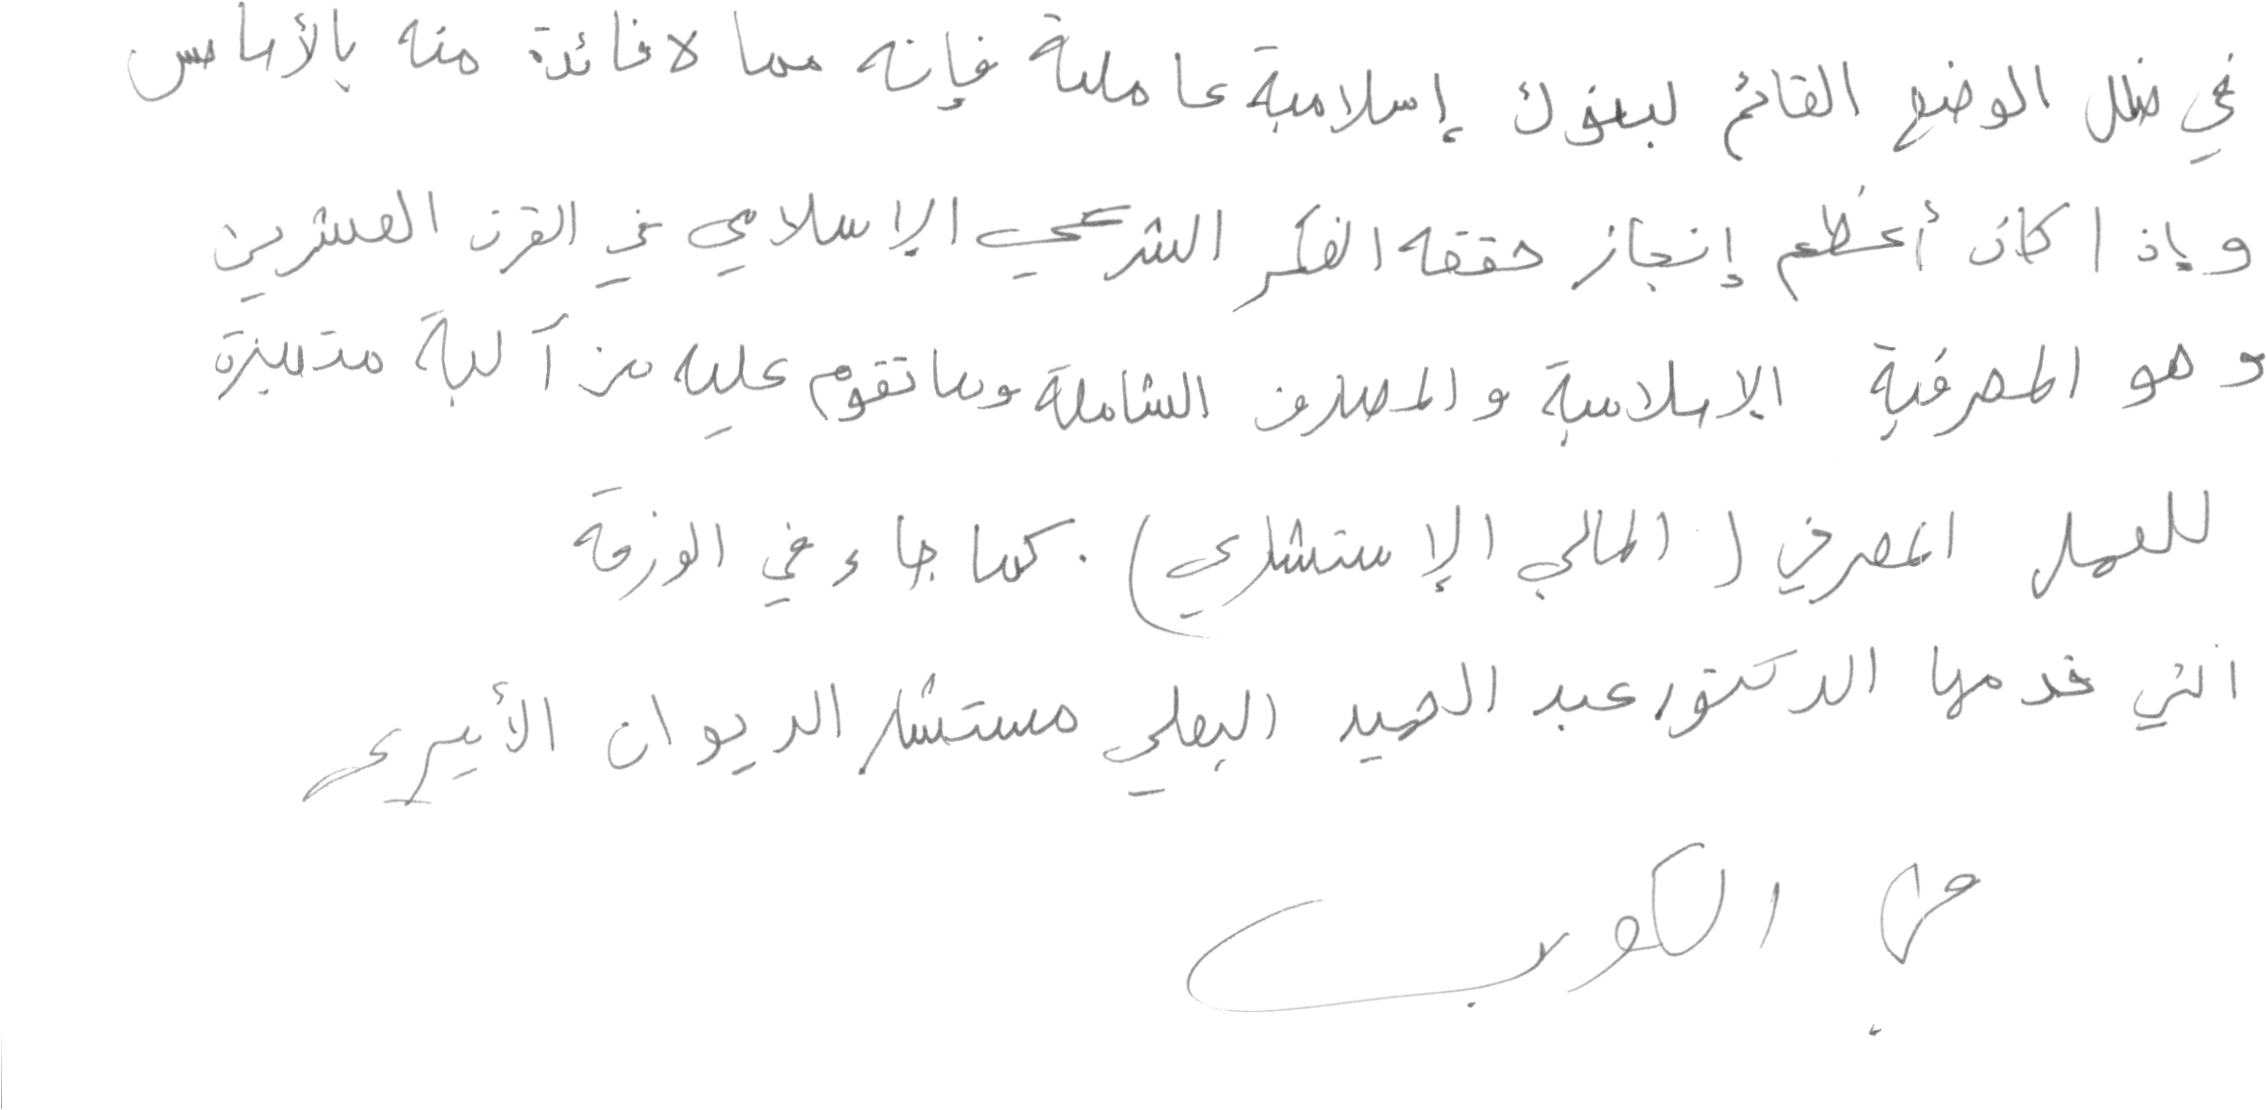 في ظل الوضع القائم لبنوك إسلامية عاملة فإنه مما لا فائدة منه بالأساس
وإذا كان أعظم إنجاز حققه الفكر الشرعي الإسلامي في القرن العشرين
وهو المصرفية الإسلامية والمصارف الشاملة وما تقوم عليه من آلية متميزة
للعمل المصرفي (المالي الإستشاري). كما جاء في الورقة
التي قدمها الدكتور عبد الحميد البعلي مستشار الديوان الأميري